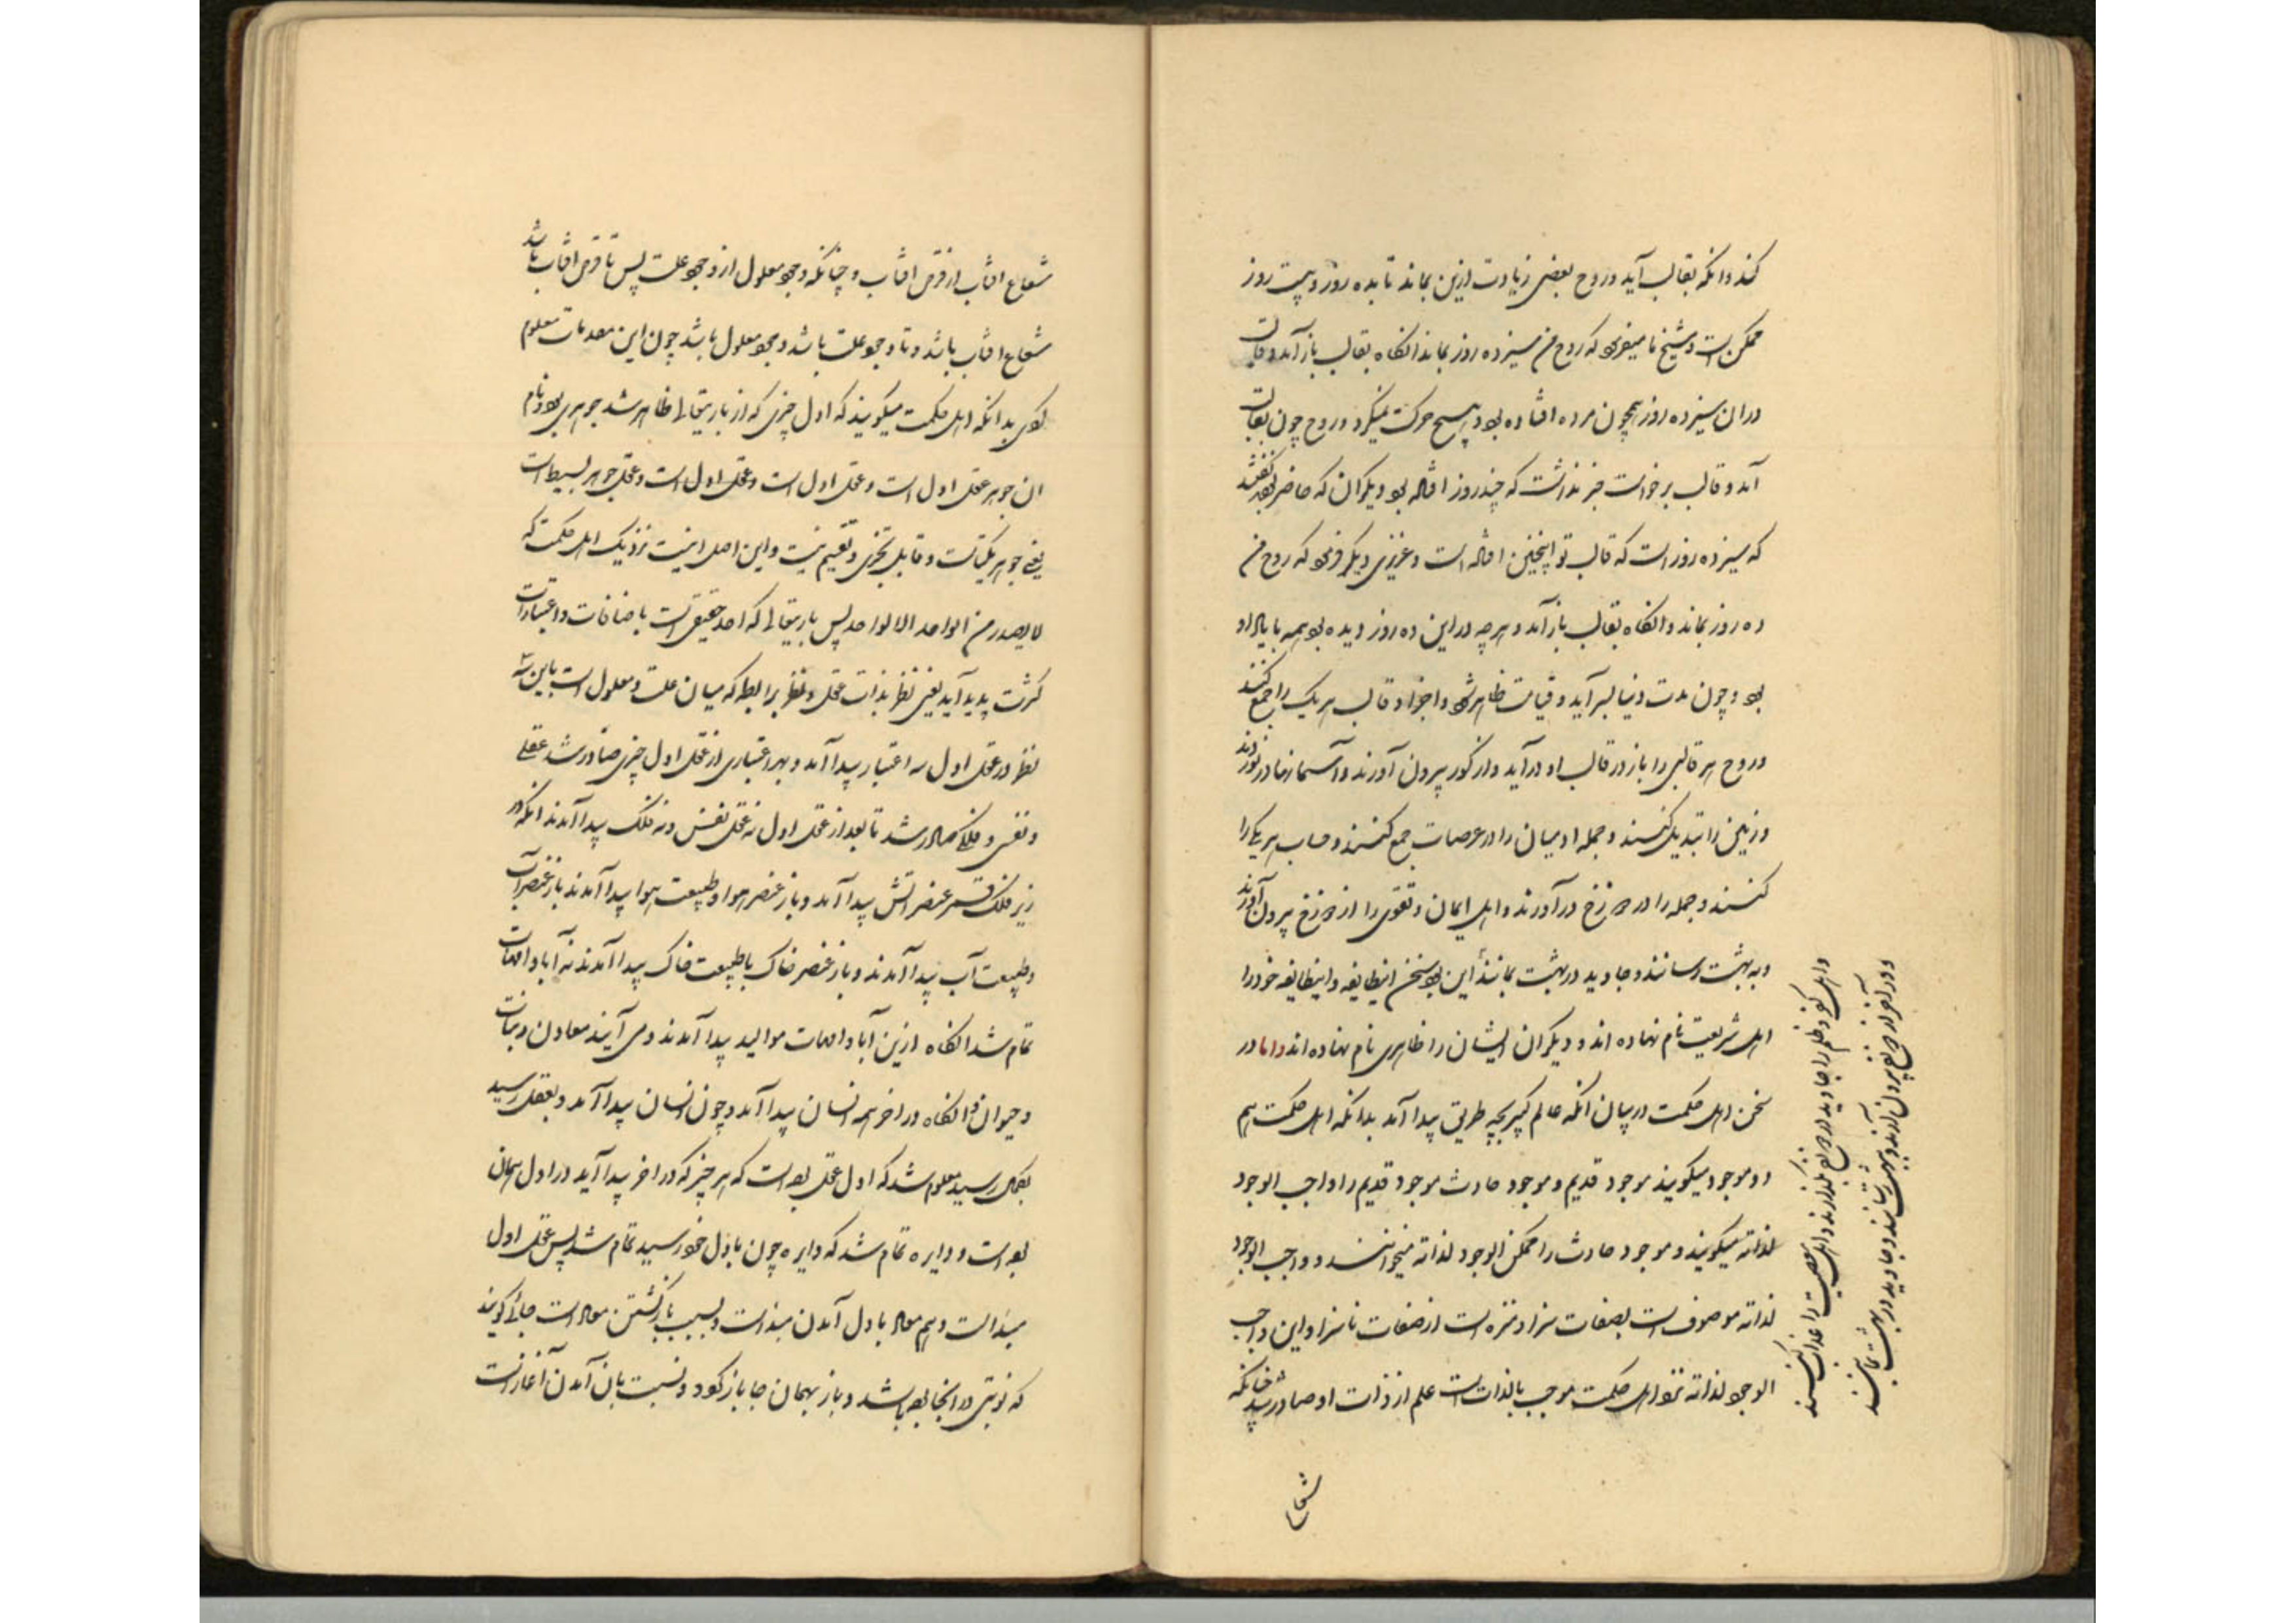 کند و انکه بقالب آید و روح بعضی زیادت ازین بماند تا بده روز و بیست روز
ممکن است و شیخ ما میفرمود که روح من سیزده روز بماند انکاه بقالب باز آمد و قالب
دران سیزده روز همچون مرده افتاده بود و هیچ حرکت نمیکرد و روح چون بقالب
آمد و قالب برخواست خبر نداشت که چند روز افتاده بود دیکران که حاضر بودند گفتند
که سیزده روز است که قالب تو اینچنین افتاده است و عزیزی دیکر فرمود که روح من
ده روز بماند و انکاه بقالب باز آمد و هرچه دراین ده روز دیده بود همه با یاد او
بود و چون مدت دنیا بسر آید و قیامت ظاهر شود و اجزاء قالب هر یک را جمع کنند
و روح هر قالبی را باز در قالب او درآید و از کور بیرون آورند و آسمانها در نوردند
و زمین را تبدیل کنند و جمله ادمیان را در عرصات جمع کنند و حساب هر یکی را
کنند و جمله را در دوزخ درآورند و اهل ایمان و تقوی را از دوزخ بیرون آورند
و به بهشت رسانند و جاوید در بهشت بمانند این بود سخن اینطایفه و اینطایفه خود را
اهل شریعت نام نهاده اند و دیکران ایشان را ظاهری نام نهاده اند و اما در
سخن اهل حکمت در بیان انکه عالم کبیر بچه طریق پیدا آمد بدانکه اهل حکمت هم
دو موجود میکویند موجود قدیم و موجود حادث موجود قدیم را واجب الوجود
لذاته میکویند و موجود حادث را ممکن الوجود لذاته میخوانند و واجب الوجود
لذاته موصوف است بصفات سزا و منزه است از صفات ناسزا و این واجب
الوجود لذاته نزد اهل حکمت موجب بالذات است علم از ذات او صادر شد چنانکه
شعاع
و اهل کفر و ظلم را جاوید در دوزخ بگذارند و اهل معصیت را عذاب کنند
و در آخر از دوزخ بیرون آرند و به بهشت رسانند و جاوید در بهشت بمانند
شعاع افتاب از قرص افتاب و چنانکه وجود معلول از وجود علت پس تا قرص افتاب باشد
شعاع افتاب باشد و تا وجود علت باشد وجود معلول باشد چون این مقدمات معلوم
کردی بدانکه اهل حکمت میکویند که اول چیزی که از باریتعالی ظاهر شد جوهری بود و نام
ان جوهر عقل اول است و عقل اول است و عقل اول است و عقل جوهر بسیط است
یعنی جوهر یکتاست و قابل تجزی و تقسیم نیست و این اصل اینست نزدیک اهل حکمت که
لا یصدر من الواحد الا الواحد پس باریتعالی که احد حقیقی است باضافات و اعتبارات
کثرت پدید آید یعنی نظر بذات عقل و نظر برابطه که میان علت و معلول است باین سه
نظر در عقل اول سه اعتبار پیدا آمد و بهر اعتباری از عقل اول چیزی صادر شد عقلی
و نفسی و فلکی صادر شد تا بعد از عقل اول نه عقل نفس و نه فلک پیدا آمدند انکه در
زیر فلک قمر عنصر اتش پیدا آمد و باز عنصر هوا و طبیعت هوا پیدا آمدند باز عنصر آب
و طبیعت آب پیدا آمدند و باز عنصر خاک با طبیعت خاک پیدا آمدند نه آباء و امهات
تمام شد انکاه ازین آباء و امهات موالید پیدا آمدند و می آیند معادن و نبات
و حیوان و انکاه در اخر همه انسان پیدا آمد و چون انسان پیدا آمد و بعقل رسید
بکمال رسید معلوم شد که اول عقل بود است که هر چیز که در اخر پیدا آید در اول همان
بود است و دایره تمام شد که دایره چون باول خود رسید تمام شد پس عقل اول
مبداء است و هم معاد باول آمدن مبدا است و بسبب باز کشتن معاد است جائی کویند
که نوبتی در انجا بوده باشد و باز بهمان جا باز کردد و نسبت بان آمدن آغاز است